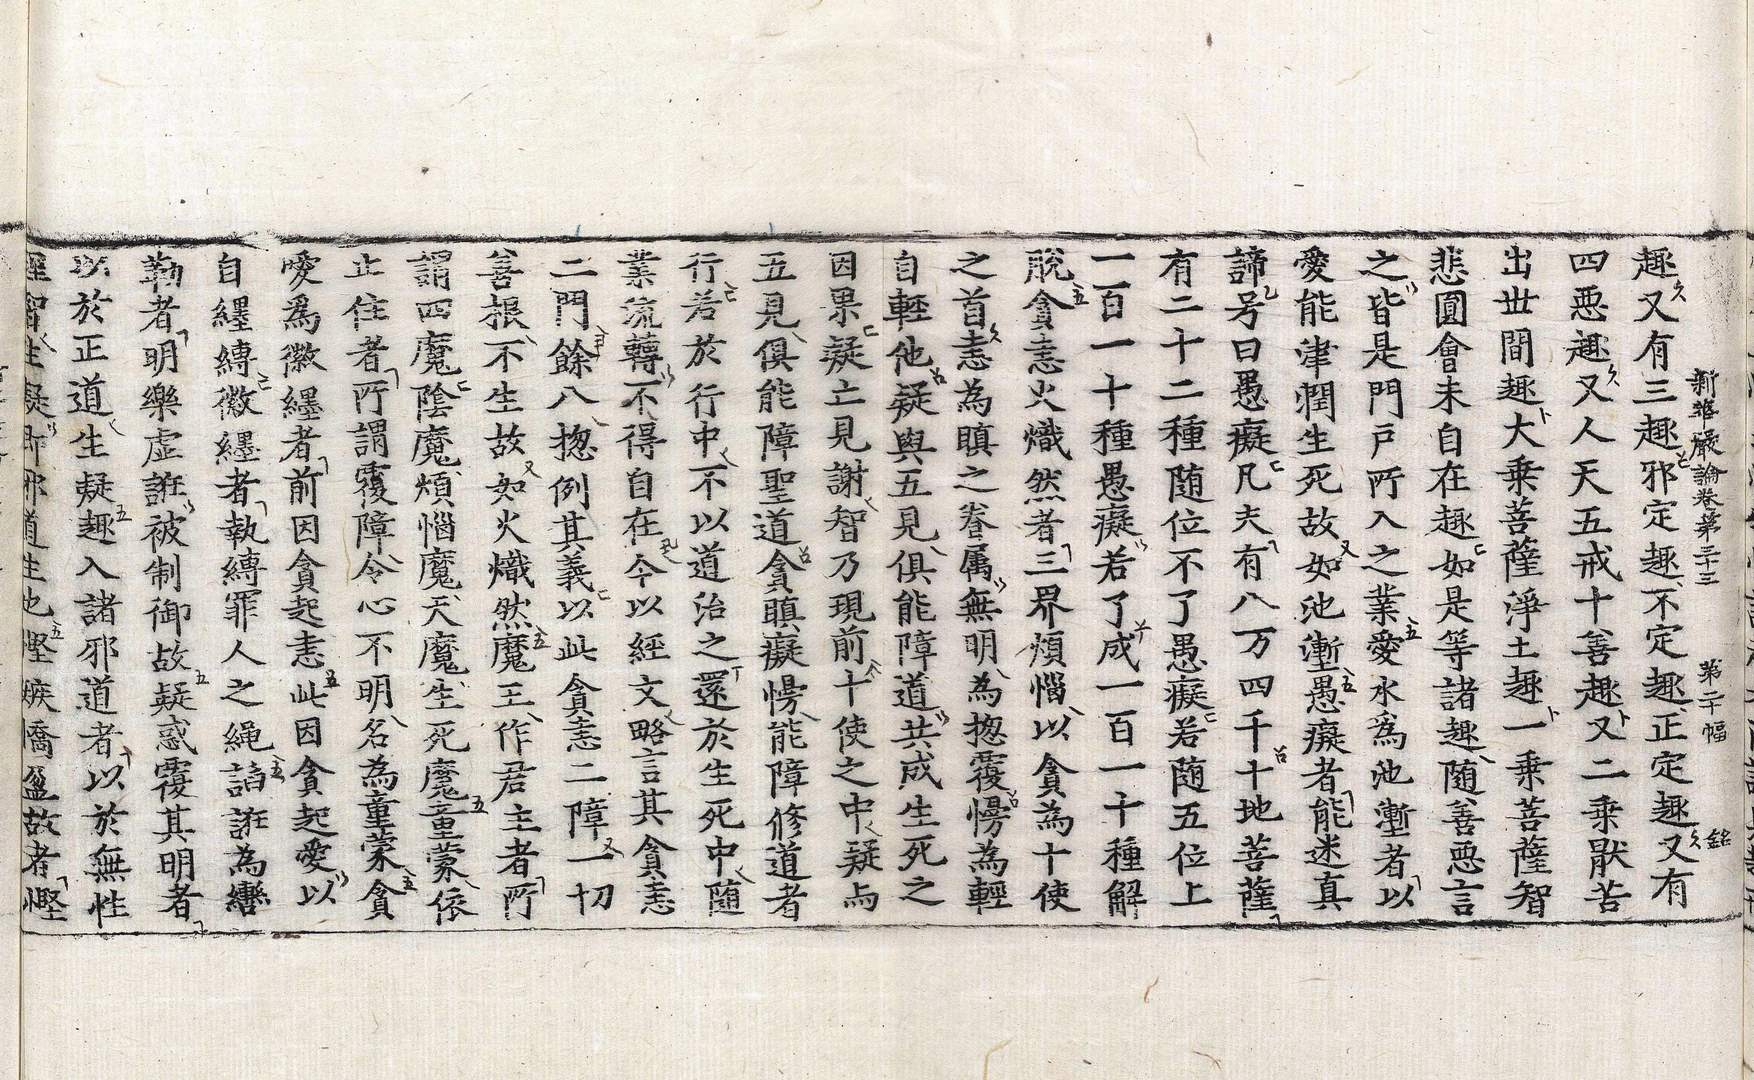 新華嚴論卷第三十三　第二十幅　銘
趣又有三趣邪定趣不定趣正定趣又有
四惡趣又人天五戒十善趣又二乗猒苦
出世間趣大乗菩薩淨土趣一乗菩薩智
悲圓會未自在趣如是等諸趣随善惡言
之皆是門戸所入之業愛水為池塹者以
愛能津潤生死故如池塹愚癡者能迷真
諦号曰愚癡凡夫有八万四千十地菩薩
有二十二種随位不了愚癡若随五位上
一百一十種愚癡若了成一百一十種解
脫貪恚火熾然者三界煩惱以貪為十使
之首恚為瞋之眷属無明為揔覆慢為輕
自輕他疑與五見俱能障道共成生死之
因果疑亡見謝智乃現前十使之中疑与
五見俱能障聖道貪瞋癡慢能障修道者
行若於行中不以道治之還於生死中随
業流轉不得自在今以經文略言其貪恚
二門餘八揔例其義以此貪恚二障一切
善根不生故如火熾然魔王作君主者所
謂四魔陰魔煩惱魔天魔生死魔童蒙依
止住者所謂覆障令心不明名為童蒙貪
愛爲徽纆者前因貪起恚此因貪起愛以
自纆縛徽纆者執縛罪人之繩諂誑為轡
勒者明樂虛誑被制御故疑惑覆其明者
以於正道生疑趣入諸邪道者以於無性
理智生疑即邪道生也慳嫉憍盈故者慳